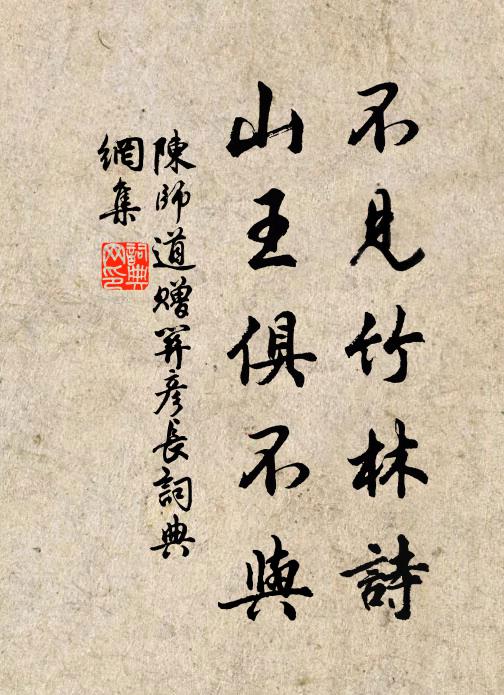 不見竹林詩
山王俱不與
陳師道贈笄彥長詞典
網集
詞典
网印